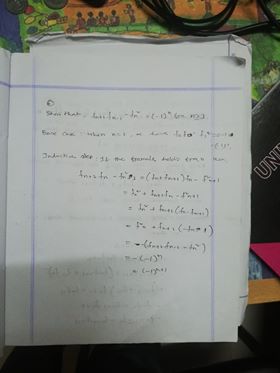 Show that fn+1 fn-1 - fn² = (-1)ⁿ for n≥1
Base case: when n=1, we have
Inductive step, If the formula holds for n
fn+2 fn - fn²+1 = (fn+fn+1)fn - fn²+1
= fn² + fn+1 fn - fn²+1
= fn² + fn+1 (fn - fn+1)
= fn² + fn+1 (-fn-1)
= -(fn+1 fn-1 - fn²)
= -(-1)ⁿ
= (-1)ⁿ+1